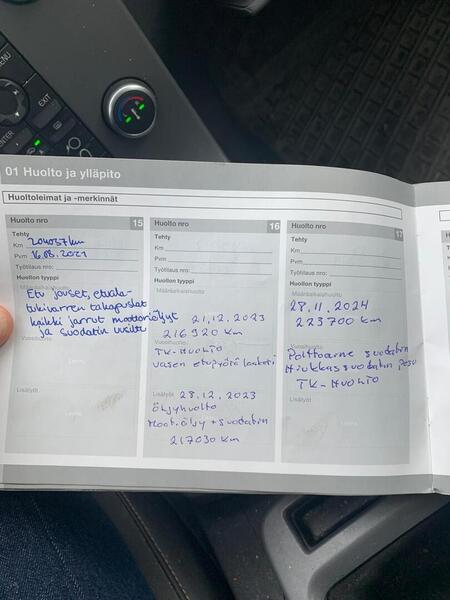 MENU
EXIT
ENTER
01 Huolto ja ylläpito
Huoltoleimat ja -merkinnät
Huolto nro 15
Tehty
Km 204037km
Pvm 16.08.2021
Työtilaus nro:
Huollon tyyppi
Määräaikaishuolto
Etu jouset, etuala-
tukivarren takapuslat
kaikki jarrut moottoriöljyt
ja suodatin uusittu
Vuosihuolto
Lisätyöt
Leima
Huolto nro 16
Tehty
Km
Pvm
Työtilaus nro:
Huollon tyyppi
Määräaikaishuolto
21.12.2023
216920 km
Vuosihuolto
TK-Huolto
vasen etupyörä laakeri
Lisätyöt 28.12.2023
Öljyhuolto
Moot.öljy + suodatin
217030 km
Huolto nro 17
Tehty
Km
Pvm
Työtilaus nro:
Huollon tyyppi
Määräaikaishuolto
28.11.2024
223700 km
Vuosihuolto
Polttoaine suodatin
Hiukkassuodatin pesu
TK-Huolto
Lisätyöt
Leima